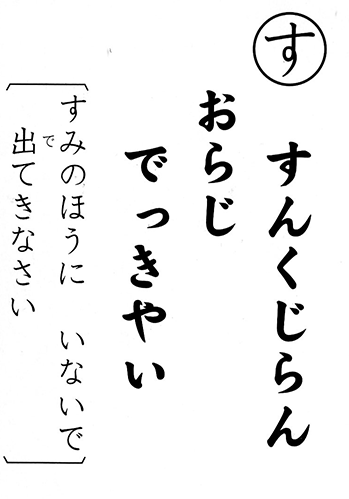 す
すんくじらん
おらじ
でっきやい
すみのほうに　いないで
出てきなさい
で